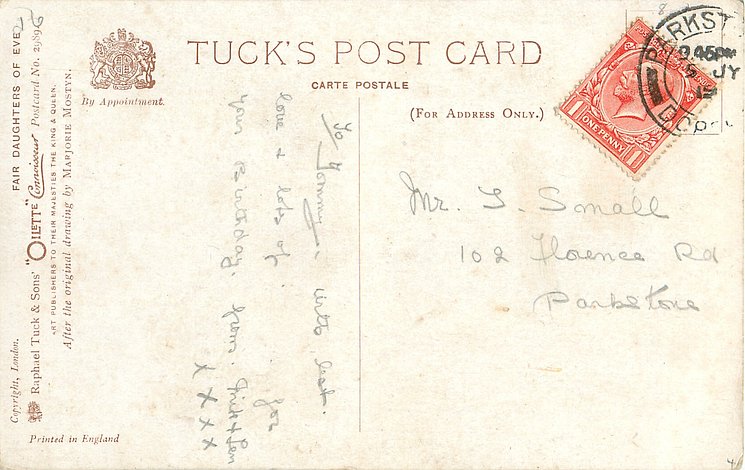 TUCK'S POST CARD
CARTE POSTALE
By Appointment.
(FOR ADDRESS ONLY.)
FAIR DAUGHTERS OF EVE
Raphael Tuck & Sons' "OILETTE" Connoisseur Postcard No. 2989
ART PUBLISHERS TO THEIR MAJESTIES THE KING & QUEEN.
After the original drawing by MARJORIE MOSTYN.
Copyright, London.
Printed in England
To Tommy. with best
love & lots of for
your Birthday. from
X X X X
Mr. T. Small
102 Florence Rd
Parkstone
ONE PENNY
1
1
PARKST
45PM
JY